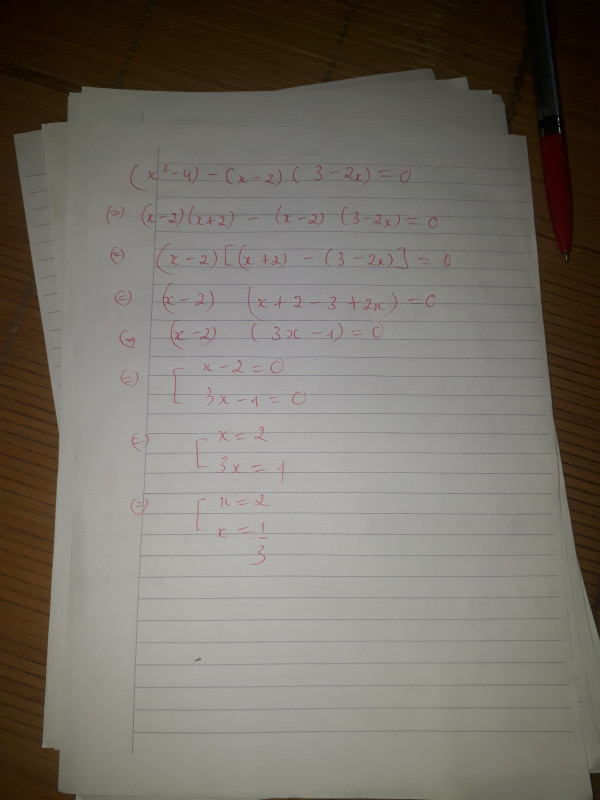 (x²-4)-(x-2)(3-2x)=0
(=) (x-2)(x+2) - (x-2) (3-2x)=0
(=) (x-2)[(x+2) - (3-2x)] = 0
(=) (x-2) (x+2-3+2x)=0
(=) (x-2) (3x-1)=0
(=) [ x-2=0
3x-1=0
(=) [ x=2
3x=1
(=) [ x=2
x=1/3